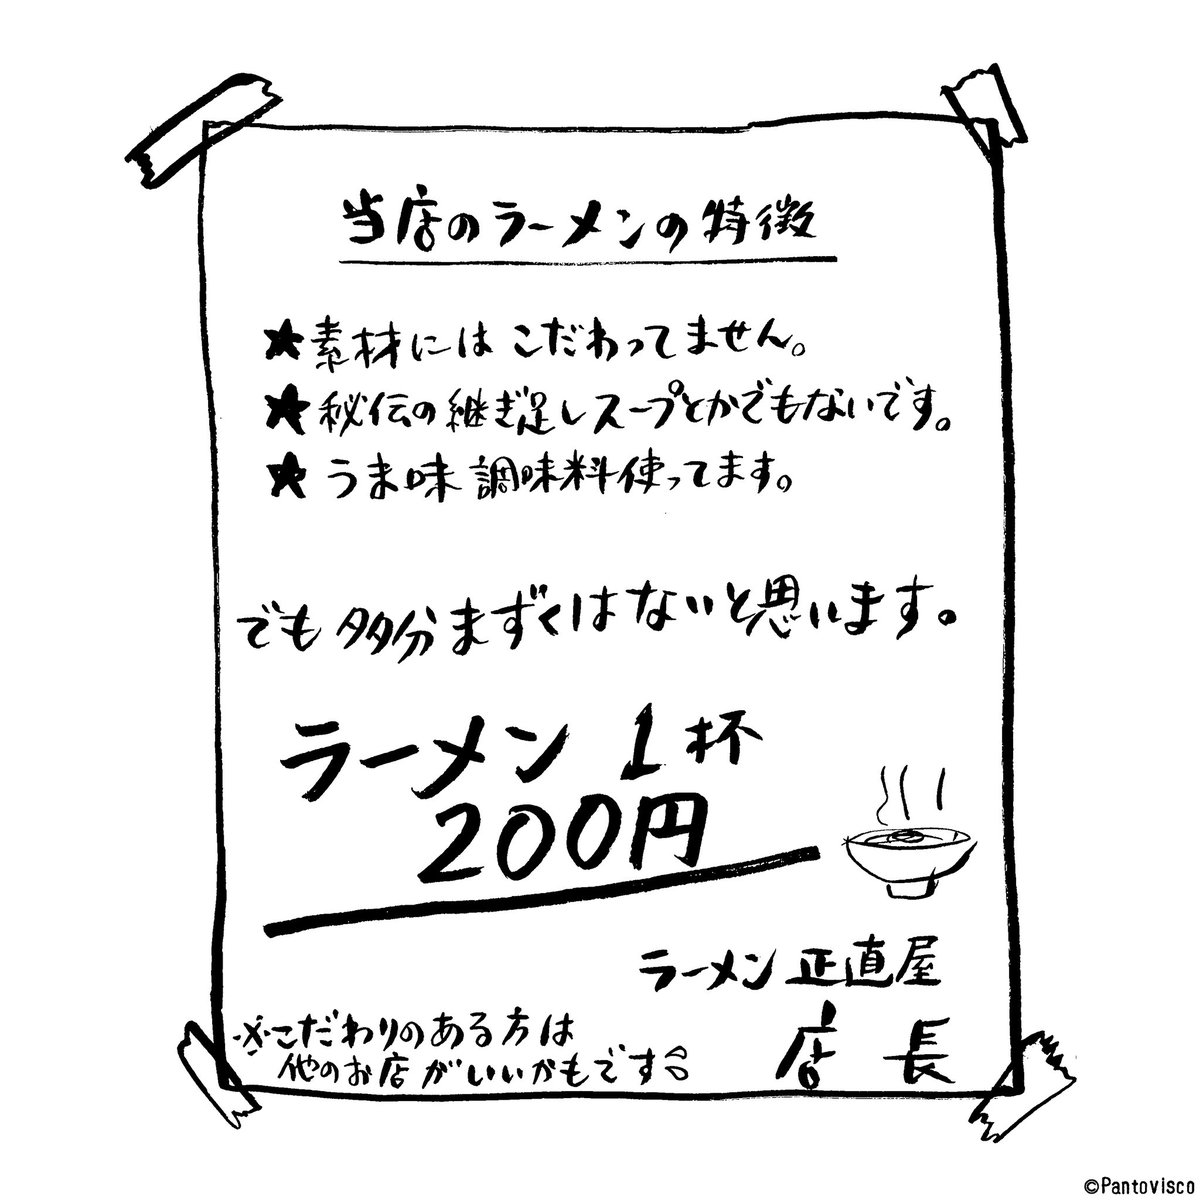 当店のラーメンの特徴
★素材にはこだわってません。
★秘伝の継ぎ足しスープとかでもないです。
★うま味調味料使ってます。
でも多分まずくはないと思います。
ラーメン1杯
200円
ラーメン正直屋
店長
※こだわりのある方は
他のお店がいいかもです
©Pantovisco